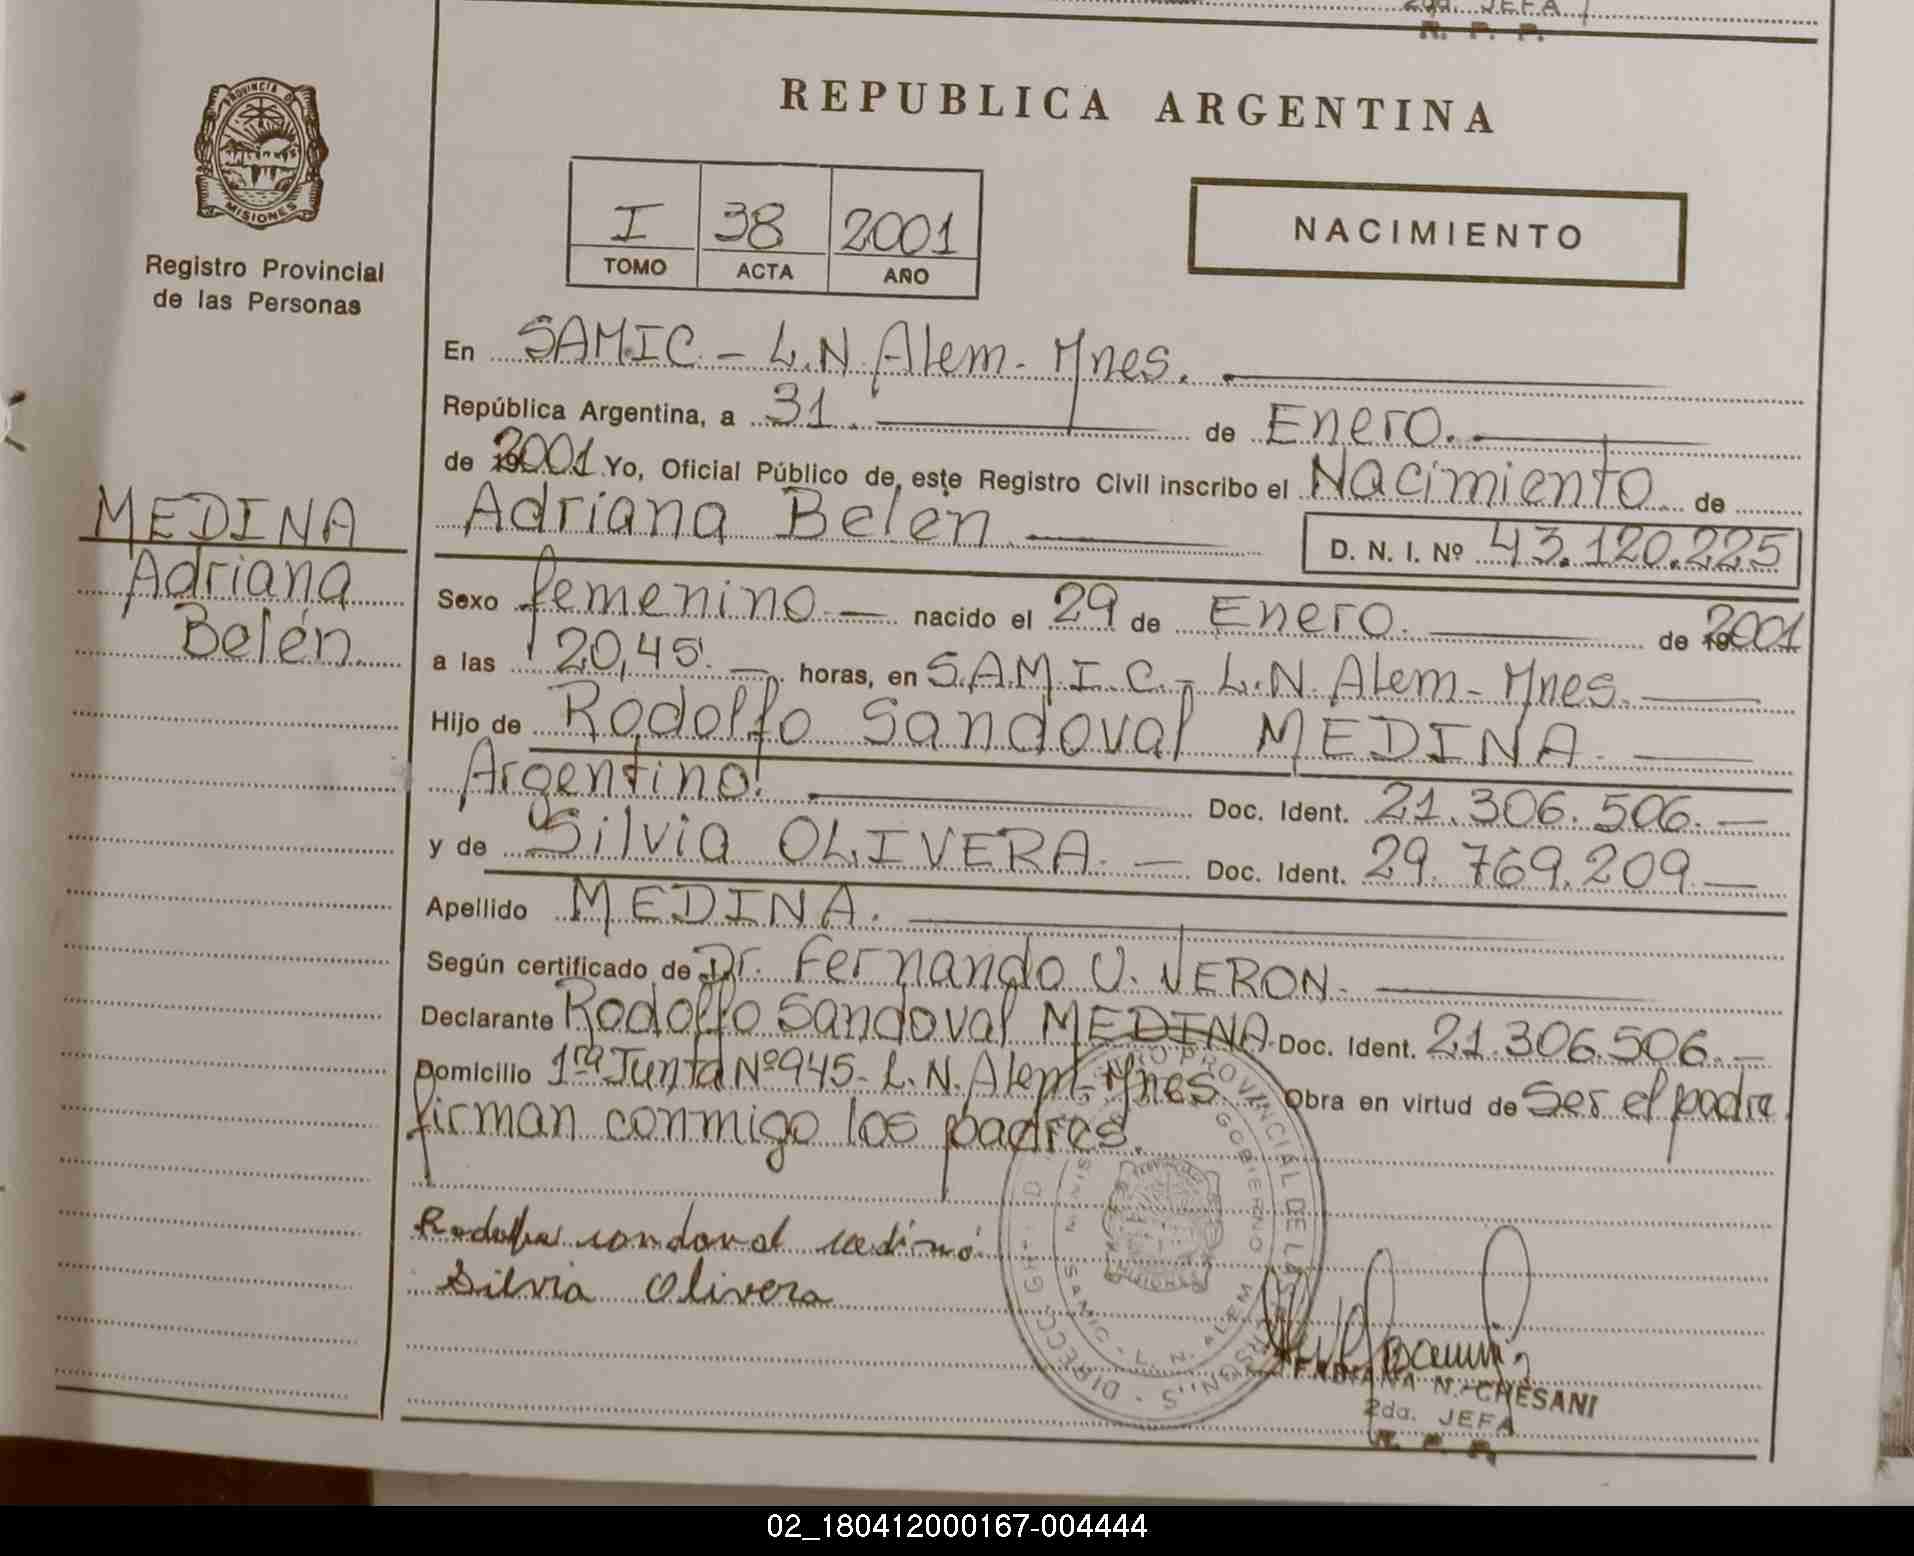 2da. JEFA
R. P. P.
REPUBLICA ARGENTINA
PROVINCIA DE
MISIONES
Registro Provincial
de las Personas
I 38 2001
TOMO ACTA AÑO
NACIMIENTO
En SAMIC - L.N. Alem - Mnes.
República Argentina, a 31. de Enero.
de 192001 Yo, Oficial Público de este Registro Civil inscribo el Nacimiento de
Adriana Belén D. N. I. Nº 43.120.225
MEDINA
Adriana
Belén
Sexo femenino nacido el 29 de Enero. de 192001
a las 20,45. horas, en S.A.M.I.C. - L.N. Alem - Mnes.
Hijo de Rodolfo Sandoval MEDINA.
Argentino. Doc. Ident. 21.306.506.
y de Silvia OLIVERA. Doc. Ident. 29.769.209
Apellido MEDINA.
Según certificado de Dr. Fernando U. VERON.
Declarante Rodolfo Sandoval MEDINA. Doc. Ident. 21.306.506.
Domicilio 1ra Junta Nº 945 - L.N. Alem - Mnes. Obra en virtud de Ser el padre.
firman conmigo los padres.
Silvia Olivera
N. CHESANI
2da. JEFA
R. P. P.
02_180412000167-004444